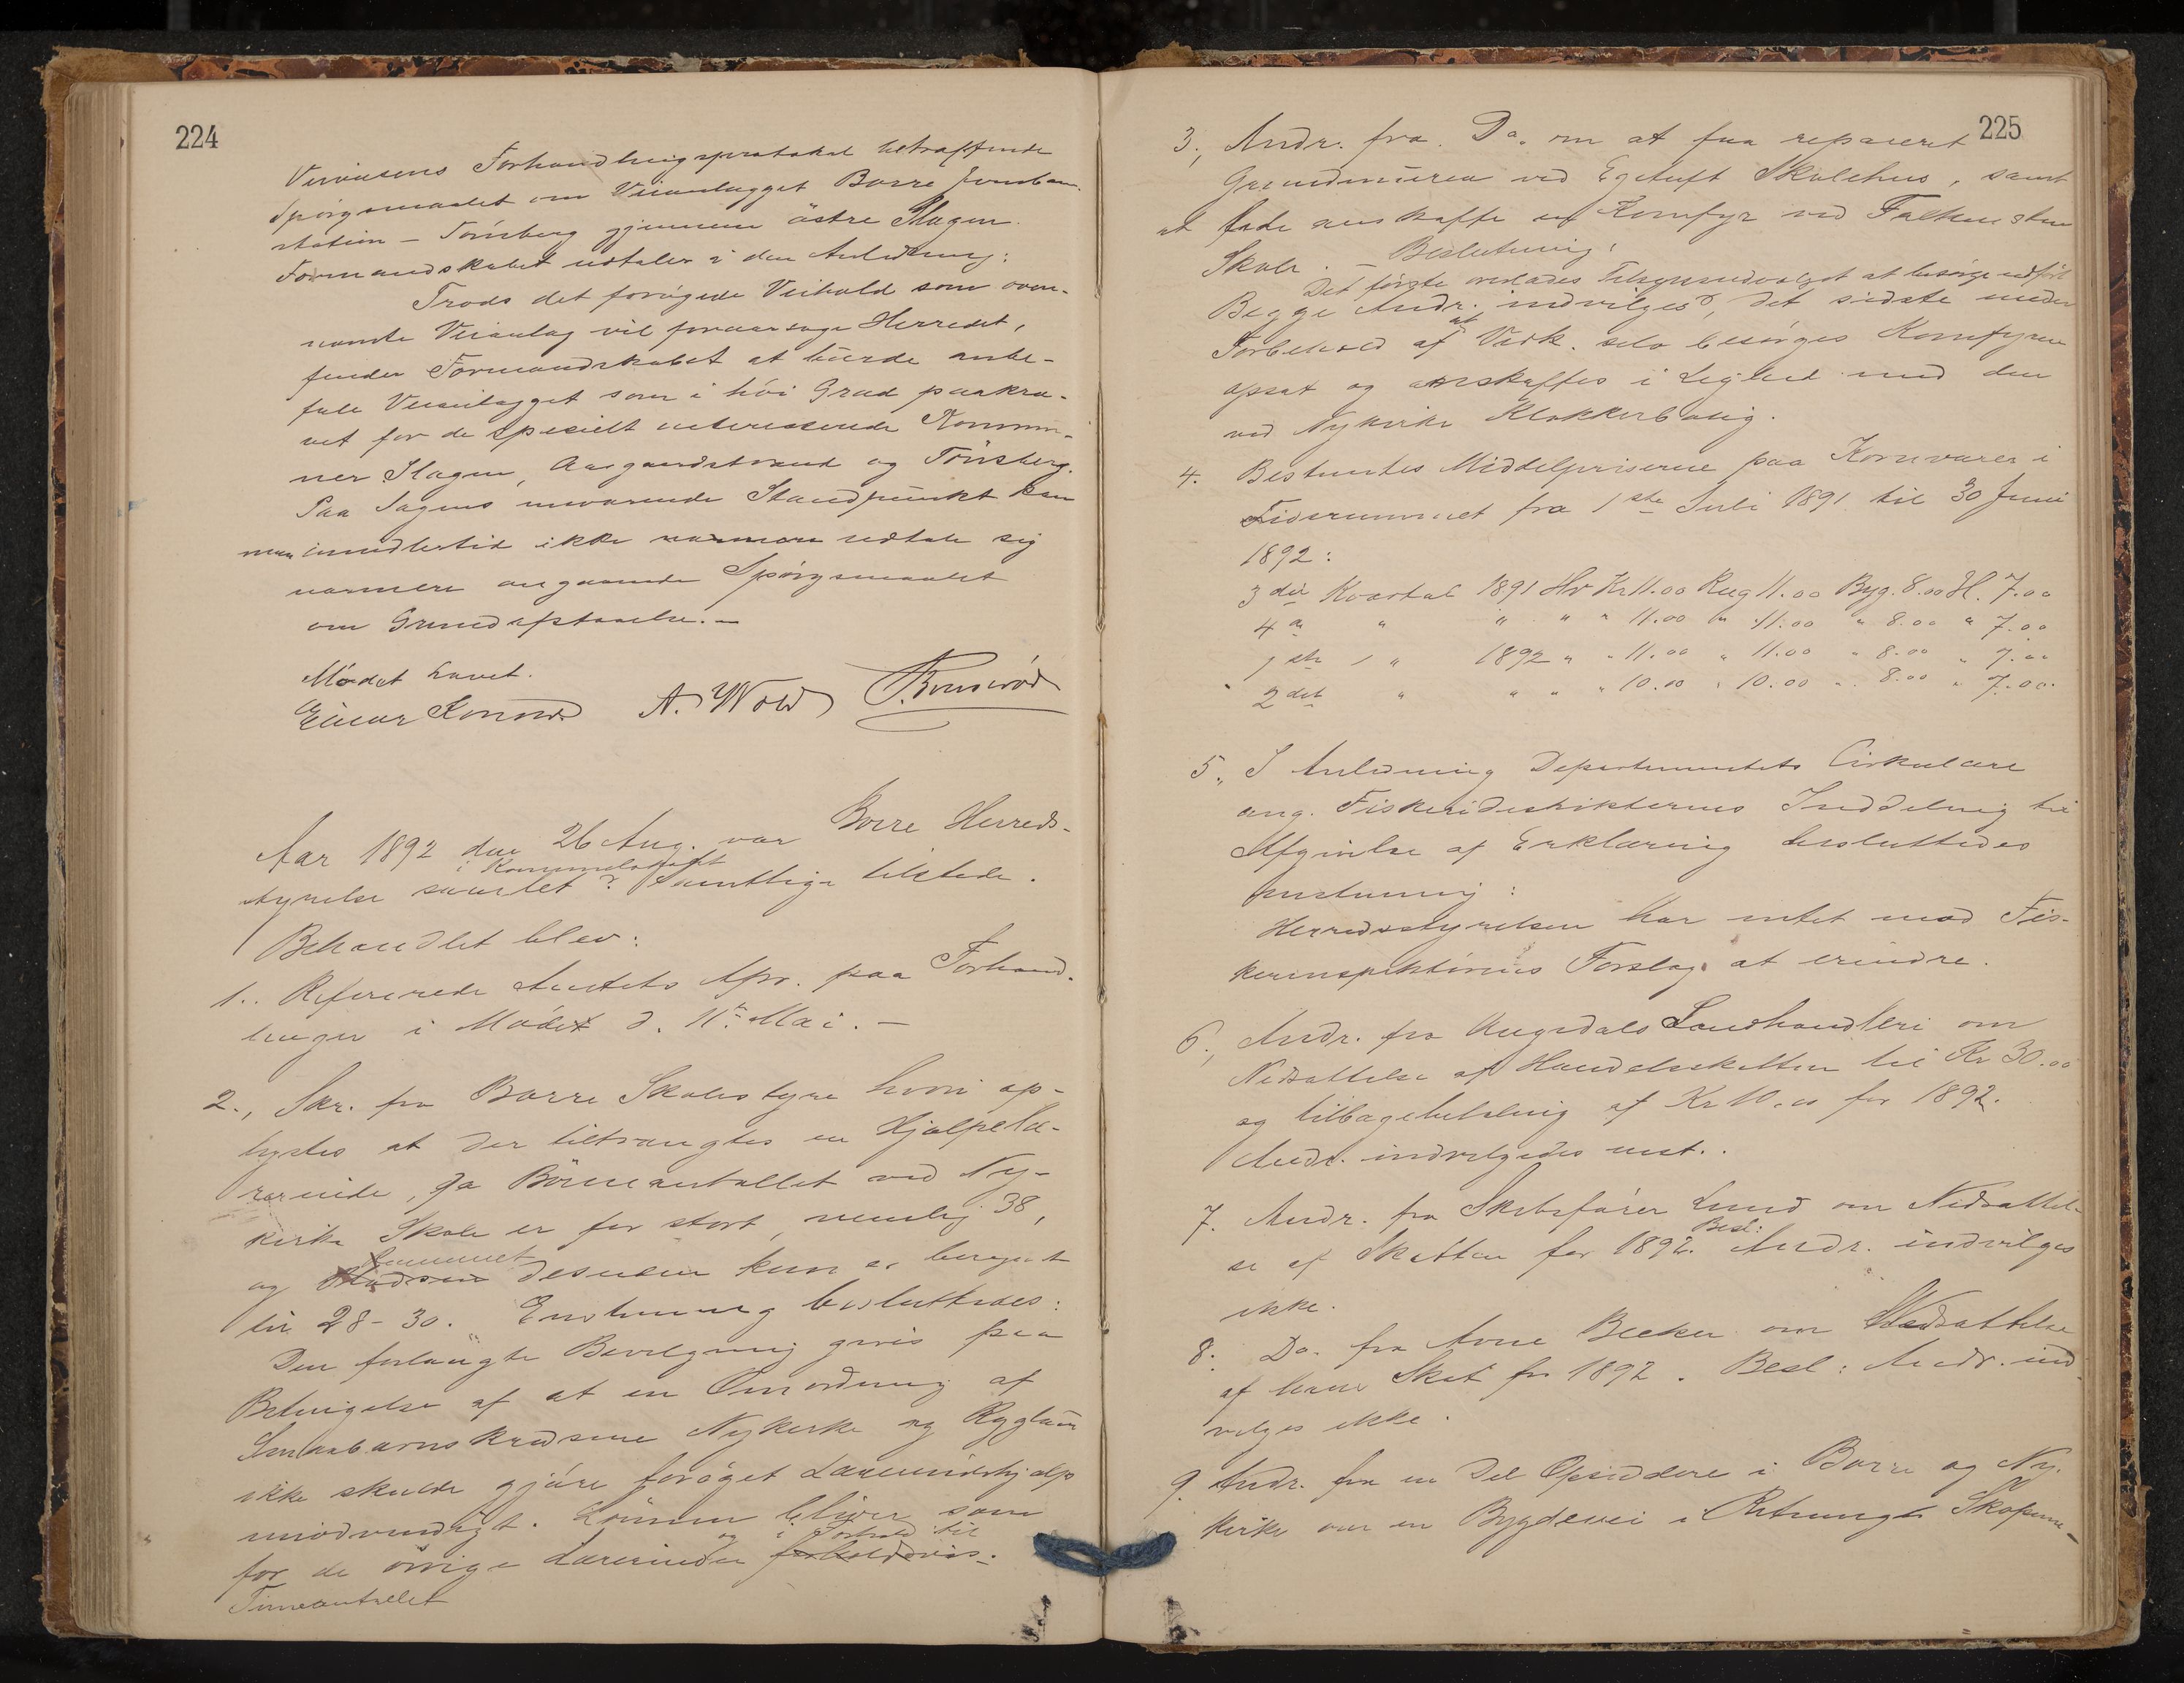 224
Veivæsens Forhandlingsprotokol betræffende
Spörgsmaalet om Veianlægget Borre Jernban-
station – Tönsberg gjennem östre Slagen.
Formandskabet udtaler i den Anledning:
Trods det forögede Veihold som oven-
nævnte Veianlæg vil foraarsage Herredet,
finder Formandskabet at burde anbe-
fale Veianlægget som i höi Grad paakræ-
vet for de specielt interesserede Kommu-
ner Slagen, Aasgaardstrand og Tönsberg.
Paa Sagens nuværende Standpunkt kan
man imidlertid ikke nærmere udtale sig
nærmere angaaende Spörgsmaalet
om Grundafstaaelse.–
Mödet hævet.
Einar A. Wold
Aar 1892 den 26 Aug. var Borre Herreds-
i Kommunelokalet
styrelse samlet. Samtlige tilstede.
Behandlet blev:
1.. Refererede Amtets Apr. paa Forhand-
linger i Mödet d. 11te Mai.–
2., Skr. fra Borre Skolestyre hvori op-
lystes at der tiltrængtes en Hjælpelæ-
rerinde, da Börneantallet ved Ny-
kirke Skole er for stort, nemlig 38,
Rummet
og desuden kun er beregnet
til 28–30. Enstemmig besluttedes:
Den forlangte Bevilgning gives paa
Betingelse af at en Omordning af
Smaabarnskredsene Nykirke og
ikke skulde gjöre foröget Lærerindehjælp
unödvendigt. Lönnen bliver som
og i Forhold til
for de övrige Lærerinder forholdsvis.
Timeantallet
225
3., Andr. fra Do. om at faa repareret
Grundmuren ved Egetuft Skolehus, samt
at lade anskaffe en Komfyr ved Falkensten
Skole. – Beslutning:
Det förste overlades Tilsynsudvalget at besörge udfört
Begge Andr. indvilges, det sidste under
at
Forbehold af Vedk. selv besörges Komfyren
opsat og anskaffes i Lighed med den
ved Nykirke Klokkerbolig.
4. Bestemtes Middelpriserne paa Kornvarer i
Tidsrummet fra 1ste Juli 1891 til 30 Juni
1892:
3die Kvartal 1891 Hv Kr 11.00 Rug 11.00 Byg. 8.00 H. 7.00
4de " " " " 11.00 " 11.00 " 8.00 " 7.00
1ste " 1892 " " 11.00 " 11.00 " 8.00 " 7.00
2det " " " " 10.00 " 10.00 " 8.00 " 7.00.
5., I Anledning Departementets Cirkulære
ang. Fiskeridistrikternes Inddeling til
Afgivelse af Erklæring besluttedes
enstemmig:
Herredsstyrelsen har intet mod Fis-
keriinspektörens Forslag at erindre.
6., Andr. fra Augedals Landhandleri om
Nedsættelse af Handelsskatten til Kr 30.00
og tilbagebetaling af Kr 10.00 for 1892.
Andr. indvilgedes enst..
7. Andr. fra Skibsförer Lund om Nedsættel-
Besl:
se af Skatten for 1892. Andr. indvilges
ikke.
8. Do. fra Arne Becken om Nedsættelse
af hans Skat for 1892. Besl: Andr. ind
vilges ikke.
9. Andr. fra en Del Opsiddere i Borre og Ny-
kirke om en Bygdevei i Retning Skopum-